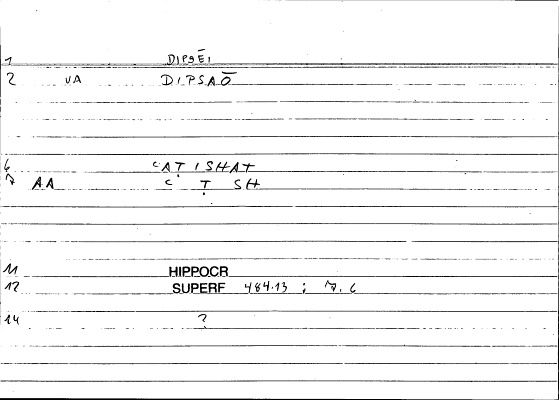 1 DIPSĒI
2 VA DIPSAŌ
6 ʿAṬISHAT
7 AA ʿ Ṭ SH
11 HIPPOCR
12 SUPERF 484.13 ; 7.6
14 ?